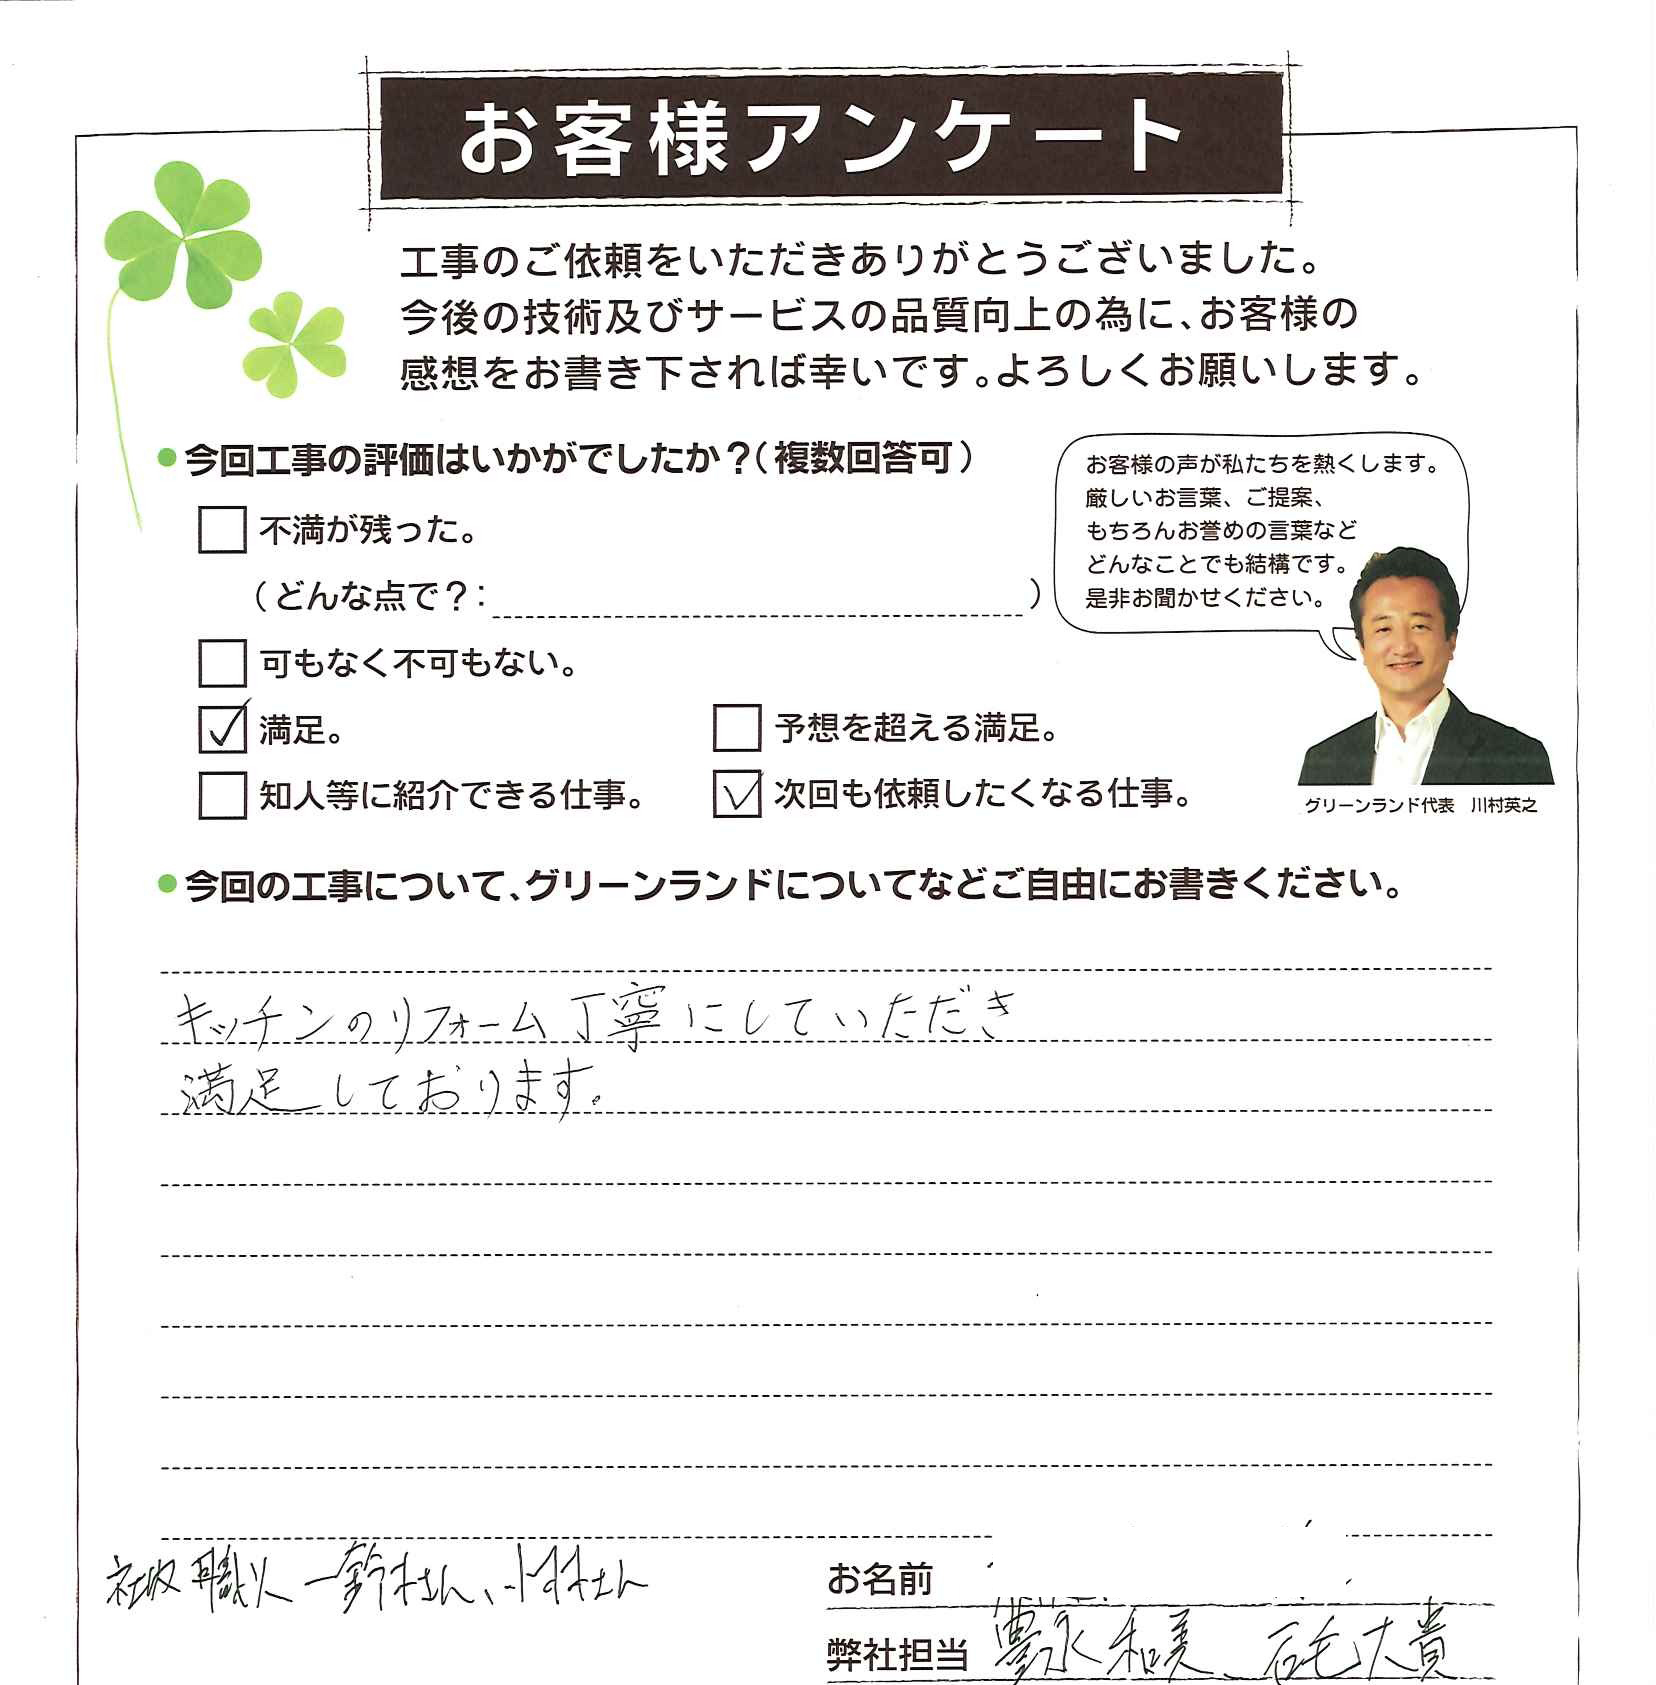 お客様アンケート
工事のご依頼をいただきありがとうございました。
今後の技術及びサービスの品質向上の為に、お客様の
感想をお書き下されば幸いです。よろしくお願いします。
●今回工事の評価はいかがでしたか？（複数回答可）
不満が残った。
（どんな点で？： ）
可もなく不可もない。
満足。
予想を超える満足。
知人等に紹介できる仕事。
次回も依頼したくなる仕事。
お客様の声が私たちを熱くします。
厳しいお言葉、ご提案、
もちろんお誉めの言葉など
どんなことでも結構です。
是非お聞かせください。
グリーンランド代表　川村英之
●今回の工事について、グリーンランドについてなどご自由にお書きください。
キッチンのリフォーム丁寧にしていただき
満足しております。
職人ー鈴木さん、小林さん
お名前
弊社担当 豊永和美、 大貴